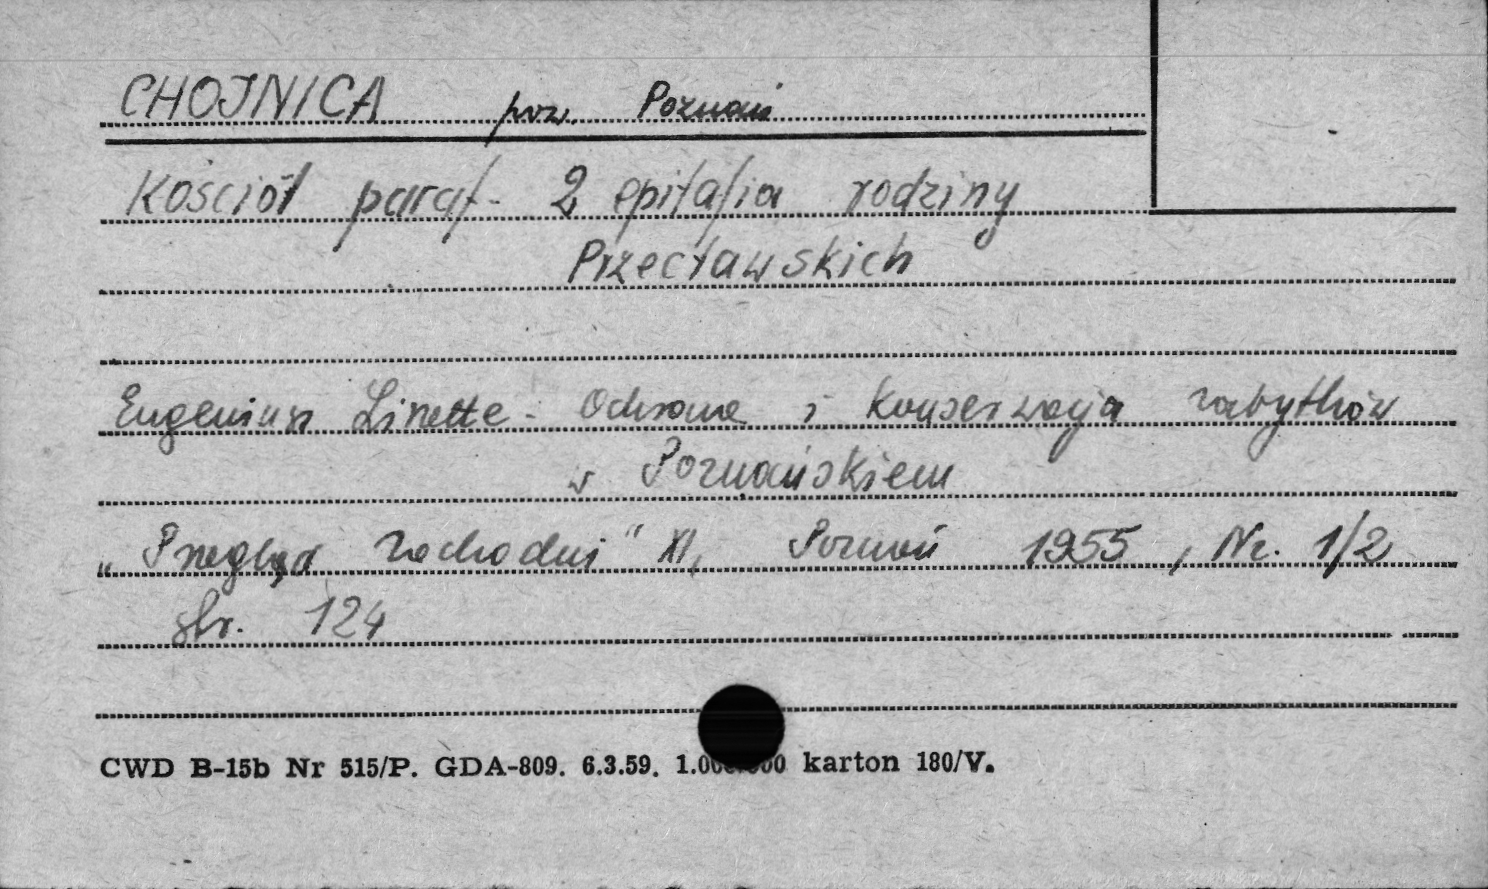 CHOJNICA pow. Poznań
Kościół paraf. 2 epitafia rodziny
Przecławskich
Eugeniusz Linette - Ochrona i konserwacja zabytków
w Poznańskiem
„Przegląd Zachodni" XI, Poznań 1955, Nr. 1/2
str. 124
CWD B-15b Nr 515/P. GDA-809. 6.3.59. karton 180/V.